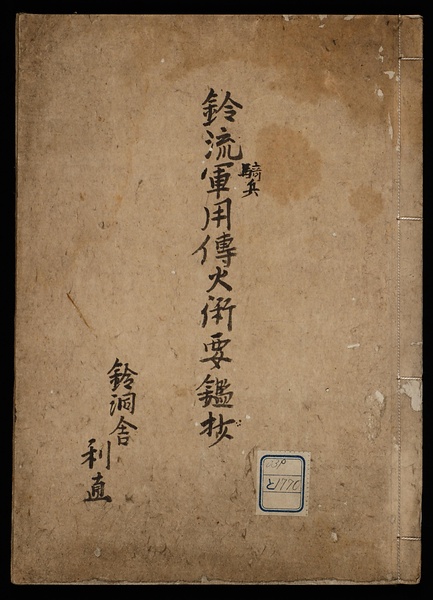 鈴流軍用傳火術要鑑抄
騎兵
鈴洞舎
利直